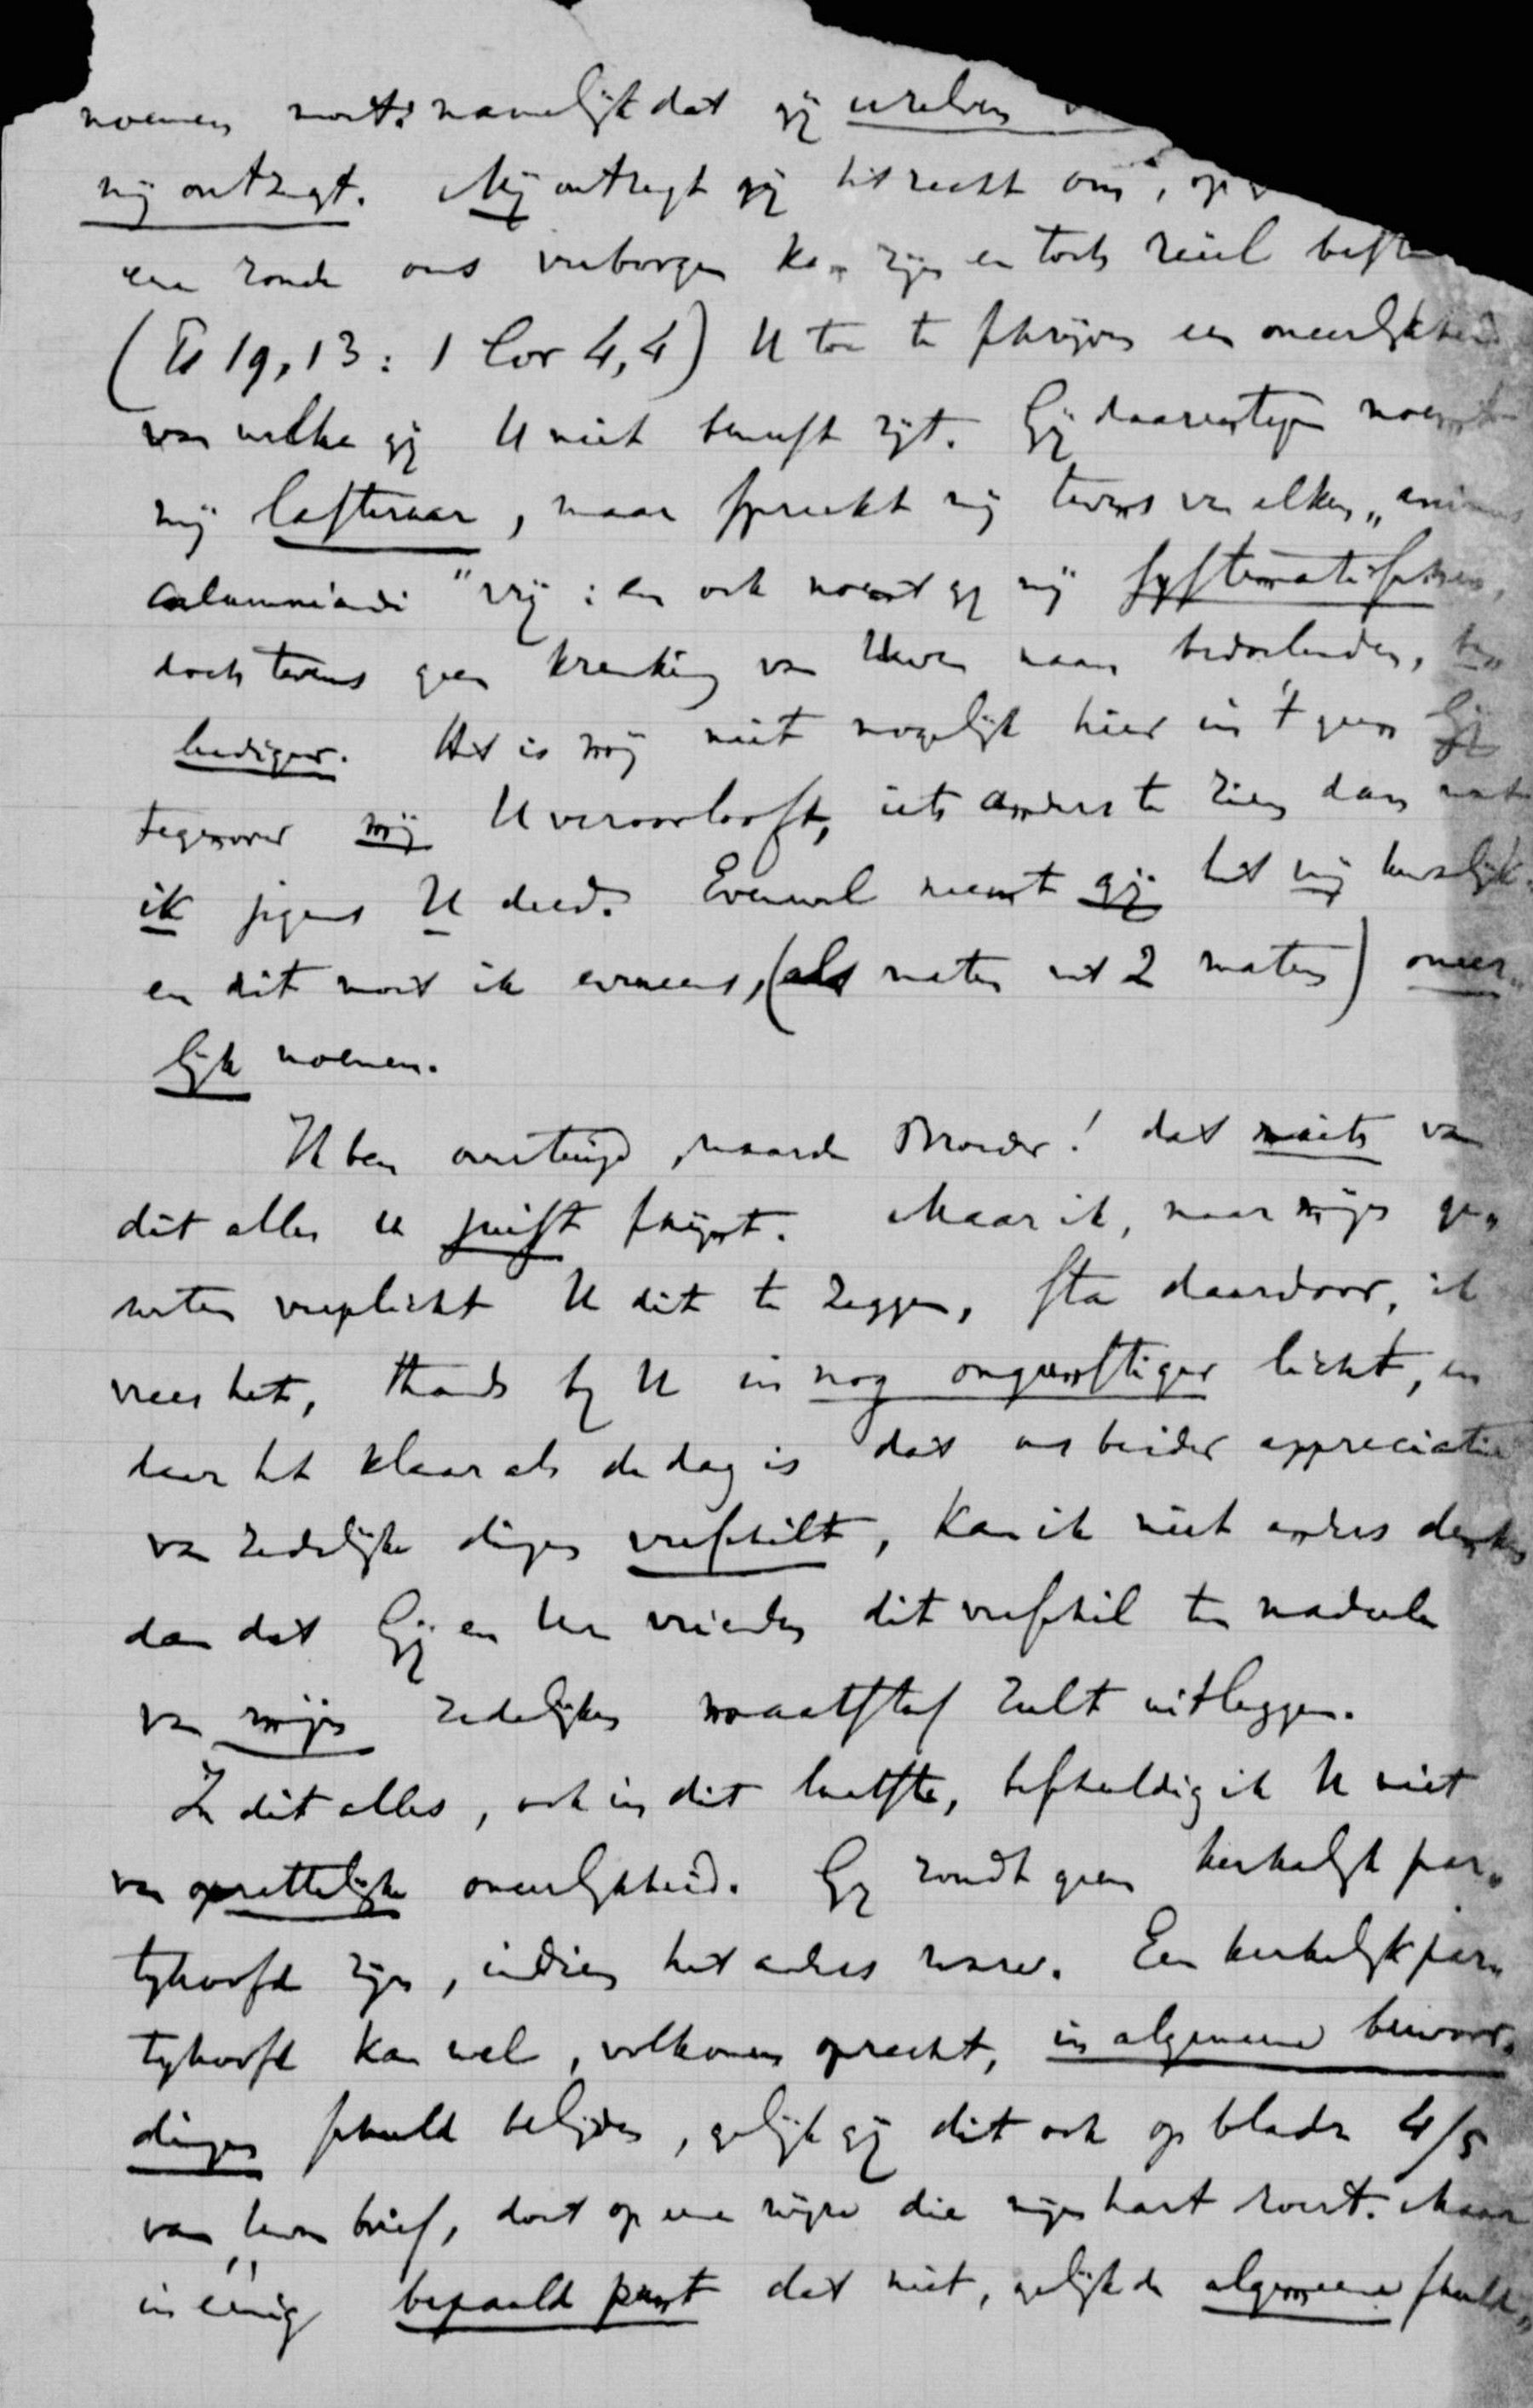 noemen moet: namelijk dat gij uzelven
mij ontzegt. Mij ontzegt gij het recht om, op
eene zonde ons verborgen kan zijn en toch reëel
(Ps 19,13: 1 Cor 4,4) U toe te schrijven een oneerlijkheid
van welke gij U niet bewust zijt. Gij daarentegen noemt
mij lasteraar, maar spreekt mij tevens van elken „animus
calumniandi" vrij: en ook noemt gij mij systematischen,
doch tevens geen krenking van Uwen naam bedoelenden, be„
leediger. Het is mij niet mogelijk hier in 't geen Gij
tegenover mij U veroorlooft, iets anders te zien dan wat
ik jegens U deed. Evenwel neemt gij het mij kwalijk
en dit moet ik eveneens, (als meten met 2 maten) oneer„
lijk noemen.
Ik ben overtuigd, waarde Broeder! dat niets van
dit alles U juist schijnt. Maar ik, naar mijn ge„
weten verplicht U dit te zeggen, sta daardoor, ik
vrees het, thans bij U in nog ongunstiger licht, en
daar het klaar als de dag is dat ons beider appreciatie
van zedelijke dingen verschilt, kan ik niet anders denken
dan dat Gij en Uw vrienden dit verschil ten nadeele
van mijn zedelijken maatstaf zult uitleggen.
In dit alles, ook in dit laatste, beschuldig ik U niet
van opzettelijke oneerlijkheid. Gij zoudt geen kerkelijk par„
tyhoofd zijn, indien het anders ware. Een kerkelijk par„
tyhoofd kan wel, volkomen oprecht, in algemeene bewoor„
dingen schuld belijden, gelijk gij dit ook op bladz 4/5
van Uwen brief, doet op eene wijze die mijn hart roert. Maar
in eenig bepaald punt dat niet, gelijk de algemeene schuld„